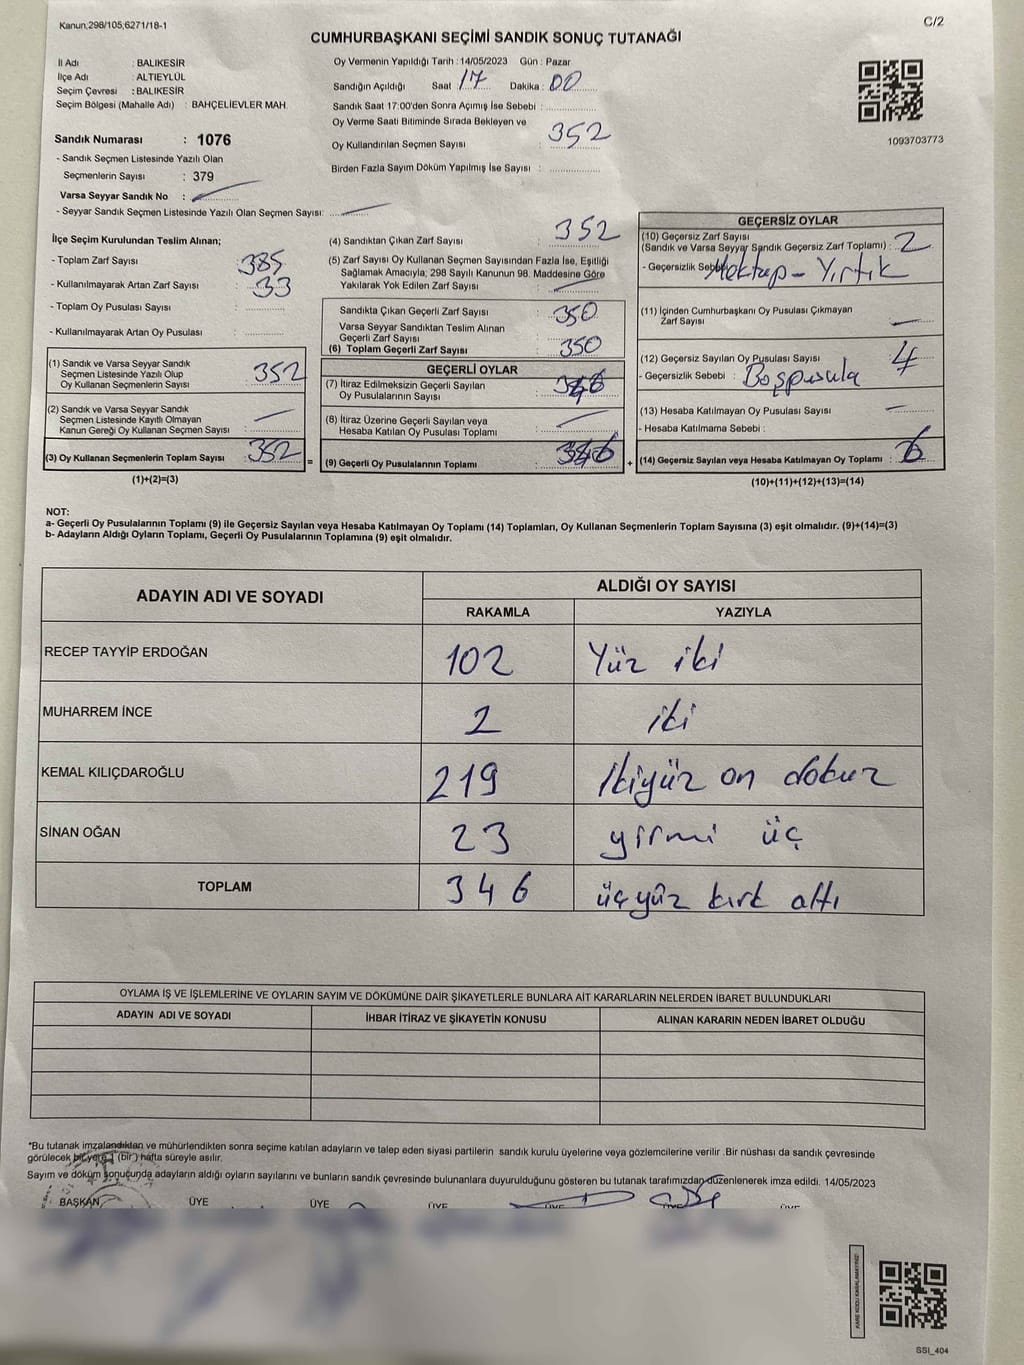 Kanun;298/105;6271/18-1
C/2
CUMHURBAŞKANI SEÇİMİ SANDIK SONUÇ TUTANAĞI
İl Adı : BALIKESİR
İlçe Adı : ALTIEYLÜL
Seçim Çevresi : BALIKESİR
Seçim Bölgesi (Mahalle Adı) : BAHÇELİEVLER MAH.
Sandık Numarası : 1076
- Sandık Seçmen Listesinde Yazılı Olan
Seçmenlerin Sayısı : 379
Varsa Seyyar Sandık No :
- Seyyar Sandık Seçmen Listesinde Yazılı Olan Seçmen Sayısı:
Oy Vermenin Yapıldığı Tarih : 14/05/2023 Gün : Pazar
Sandığın Açıldığı Saat 17 Dakika : 00
Sandık Saat 17:00'den Sonra Açımış İse Sebebi :
Oy Verme Saati Bitiminde Sırada Bekleyen ve
Oy Kullandırılan Seçmen Sayısı : 352
Birden Fazla Sayım Döküm Yapılmış İse Sayısı :
1093703773
İlçe Seçim Kurulundan Teslim Alınan;
- Toplam Zarf Sayısı : 385
- Kullanılmayarak Artan Zarf Sayısı : 33
- Toplam Oy Pusulası Sayısı :
- Kullanılmayarak Artan Oy Pusulası :
(1) Sandık ve Varsa Seyyar Sandık
Seçmen Listesinde Yazılı Olup
Oy Kullanan Seçmenlerin Sayısı : 352
(2) Sandık ve Varsa Seyyar Sandık
Seçmen Listesinde Kayıtlı Olmayan
Kanun Gereği Oy Kullanan Seçmen Sayısı :
(3) Oy Kullanan Seçmenlerin Toplam Sayısı : 352
(1)+(2)=(3)
(4) Sandıktan Çıkan Zarf Sayısı : 352
(5) Zarf Sayısı Oy Kullanan Seçmen Sayısından Fazla İse, Eşitliği
Sağlamak Amacıyla; 298 Sayılı Kanunun 98. Maddesine Göre
Yakılarak Yok Edilen Zarf Sayısı :
Sandıkta Çıkan Geçerli Zarf Sayısı : 350
Varsa Seyyar Sandıktan Teslim Alınan
Geçerli Zarf Sayısı :
(6) Toplam Geçerli Zarf Sayısı : 350
GEÇERLİ OYLAR
(7) İtiraz Edilmeksizin Geçerli Sayılan
Oy Pusulalarının Sayısı : 346
(8) İtiraz Üzerine Geçerli Sayılan veya
Hesaba Katılan Oy Pusulası Toplamı :
= (9) Geçerli Oy Pusulalarının Toplamı : 346 +
GEÇERSİZ OYLAR
(10) Geçersiz Zarf Sayısı
(Sandık ve Varsa Seyyar Sandık Geçersiz Zarf Toplamı) : 2
- Geçersizlik Sebebi : Mektup - Yırtık
(11) İçinden Cumhurbaşkanı Oy Pusulası Çıkmayan
Zarf Sayısı :
(12) Geçersiz Sayılan Oy Pusulası Sayısı : 4
- Geçersizlik Sebebi : Boşpusula
(13) Hesaba Katılmayan Oy Pusulası Sayısı :
- Hesaba Katılmama Sebebi :
(14) Geçersiz Sayılan veya Hesaba Katılmayan Oy Toplamı : 6
(10)+(11)+(12)+(13)=(14)
NOT:
a- Geçerli Oy Pusulalarının Toplamı (9) ile Geçersiz Sayılan veya Hesaba Katılmayan Oy Toplamı (14) Toplamları, Oy Kullanan Seçmenlerin Toplam Sayısına (3) eşit olmalıdır. (9)+(14)=(3)
b- Adayların Aldığı Oyların Toplamı, Geçerli Oy Pusulalarının Toplamına (9) eşit olmalıdır.
ADAYIN ADI VE SOYADI ALDIĞI OY SAYISI
RAKAMLA YAZIYLA
RECEP TAYYİP ERDOĞAN 102 Yüz iki
MUHARREM İNCE 2 iki
KEMAL KILIÇDAROĞLU 219 İkiyüz on dokuz
SİNAN OĞAN 23 yirmi üç
TOPLAM 346 üçyüz kırk altı
OYLAMA İŞ VE İŞLEMLERİNE VE OYLARIN SAYIM VE DÖKÜMÜNE DAİR ŞİKAYETLERLE BUNLARA AİT KARARLARIN NELERDEN İBARET BULUNDUKLARI
ADAYIN ADI VE SOYADI İHBAR İTİRAZ VE ŞİKAYETİN KONUSU ALINAN KARARIN NEDEN İBARET OLDUĞU
*Bu tutanak imzalandıktan ve mühürlendikten sonra seçime katılan adayların ve talep eden siyasi partilerin sandık kurulu üyelerine veya gözlemcilerine verilir .Bir nüshası da sandık çevresinde
görülecek bir yere 1 (bir ) hafta süreyle asılır.
Sayım ve döküm sonucunda adayların aldığı oyların sayılarını ve bunların sandık çevresinde bulunanlara duyurulduğunu gösteren bu tutanak tarafımızdan düzenlenerek imza edildi. 14/05/2023
BAŞKAN ÜYE ÜYE ÜYE ÜYE ÜYE ÜYE
KARE KODU KARALAMAYINIZ!
SSI_404